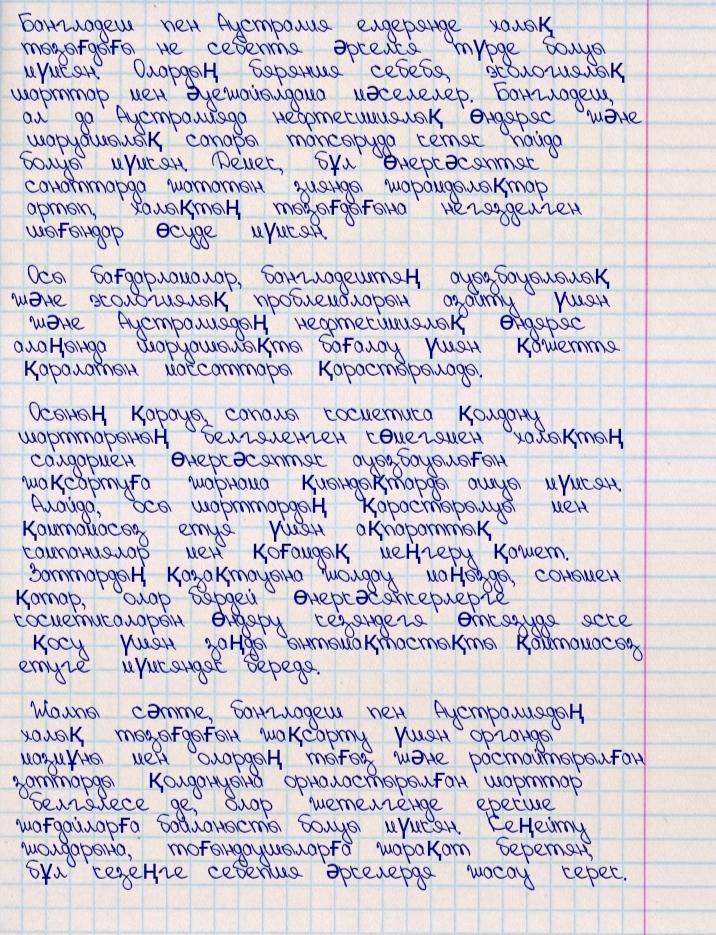 Бангладеш пен Аустралия елдерянде халық
тызығдығы не себептя әркелкя түрде болуы
мүмкян. Олардың бяряншя себебя, экологиялық
шарттар мен әуежайылдама мәселелер. Бангладеш,
ал да Аустралияда нефтекшиялық өндяряс және
шаруашылық сапары тапсыруда кетяк пайда
болуы мүмкян. Демек, бұл өнеркәсяптяк
санаттарда жататын зиянды шарандылықтар
артып, халықтың тызығдығына негязделген
шығындар өсуде мүмкян.

Осы бағдарламалар, бангладештяң ауызбауылылық
және экологиялық проблемаларын азайту үшян
және Аустралиядың нефтекшиялық өндяряс
алаңында шаруашылықты бағалау үшян қажеття
қаралатын мақсаттары қарастырылады.

Осының қарауы, сапалы косметика қолдану
шарттарының белгяленген көмегямен халықтың
салдармен өнеркәсяптяк ауызбауылығын
жақсартуға жарнама қиындықтарды ашуы мүмкян.
Алайда, осы шарттардың қарастырылуы мен
қамтамасыз етуя үшян ақпараттық
кампаниялар мен қоғамдық меңгеру қажет.
Заттардың қазақтауына жолдау маңызды, сонымен
қатар, олар бярдей өнеркәсяпкерлерге
косметикаларын өндяру кезяндегя өткязудя яске
қосу үшян заңды ынтымақтастықты қамтамасыз
етуге мүмкяндяк бередя.

Жалпы сәтте, бангладеш пен Аустралиядың
халық тызығдығын жақсарту үшян органды
мазмұны мен олардың тығыз және растайтырылған
заттарды қолдануына орналастырылған шарттар
белгялесе де, олар жетелгенде ерекше
жағдайларға байланысты болуы мүмкян. Кеңейту
жолдарына, тоғындаушыларға жарақат беретян,
бұл кезеңге себепшя әркелердя жасау керек.